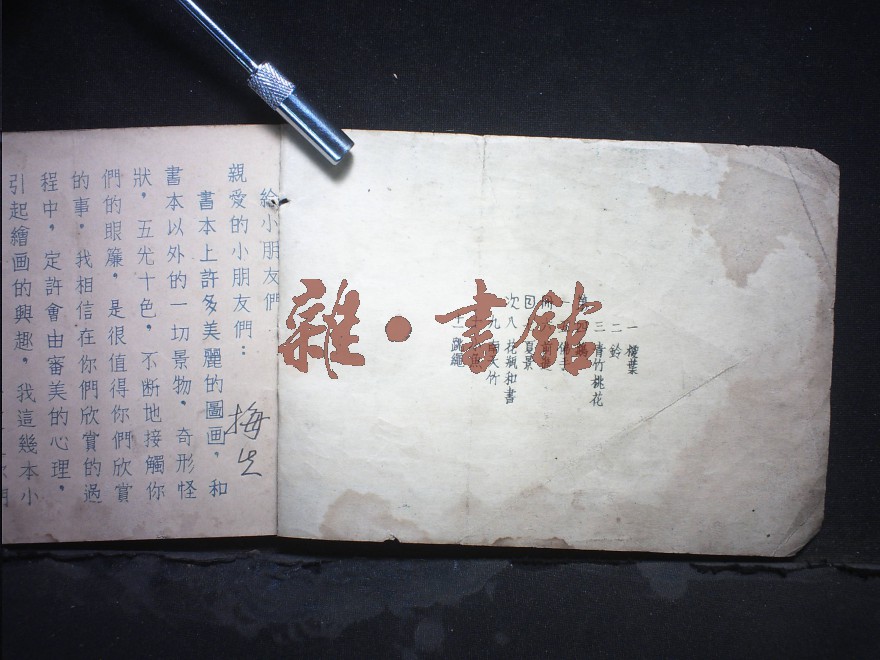 一 葉
二 鈴
三 青竹桃花
夏景
八 花瓶和書
九 天竹
給小朋友們
親愛的小朋友們：
書本上許多美麗的圖画，和
書本以外的一切景物，奇形怪
狀，五光十色，不断地接觸你
們的眼簾，是很值得你們欣賞
的事。我相信在你們欣賞的過
程中，定許會由審美的心理，
引起繪画的興趣，我這幾本小
雜·書館